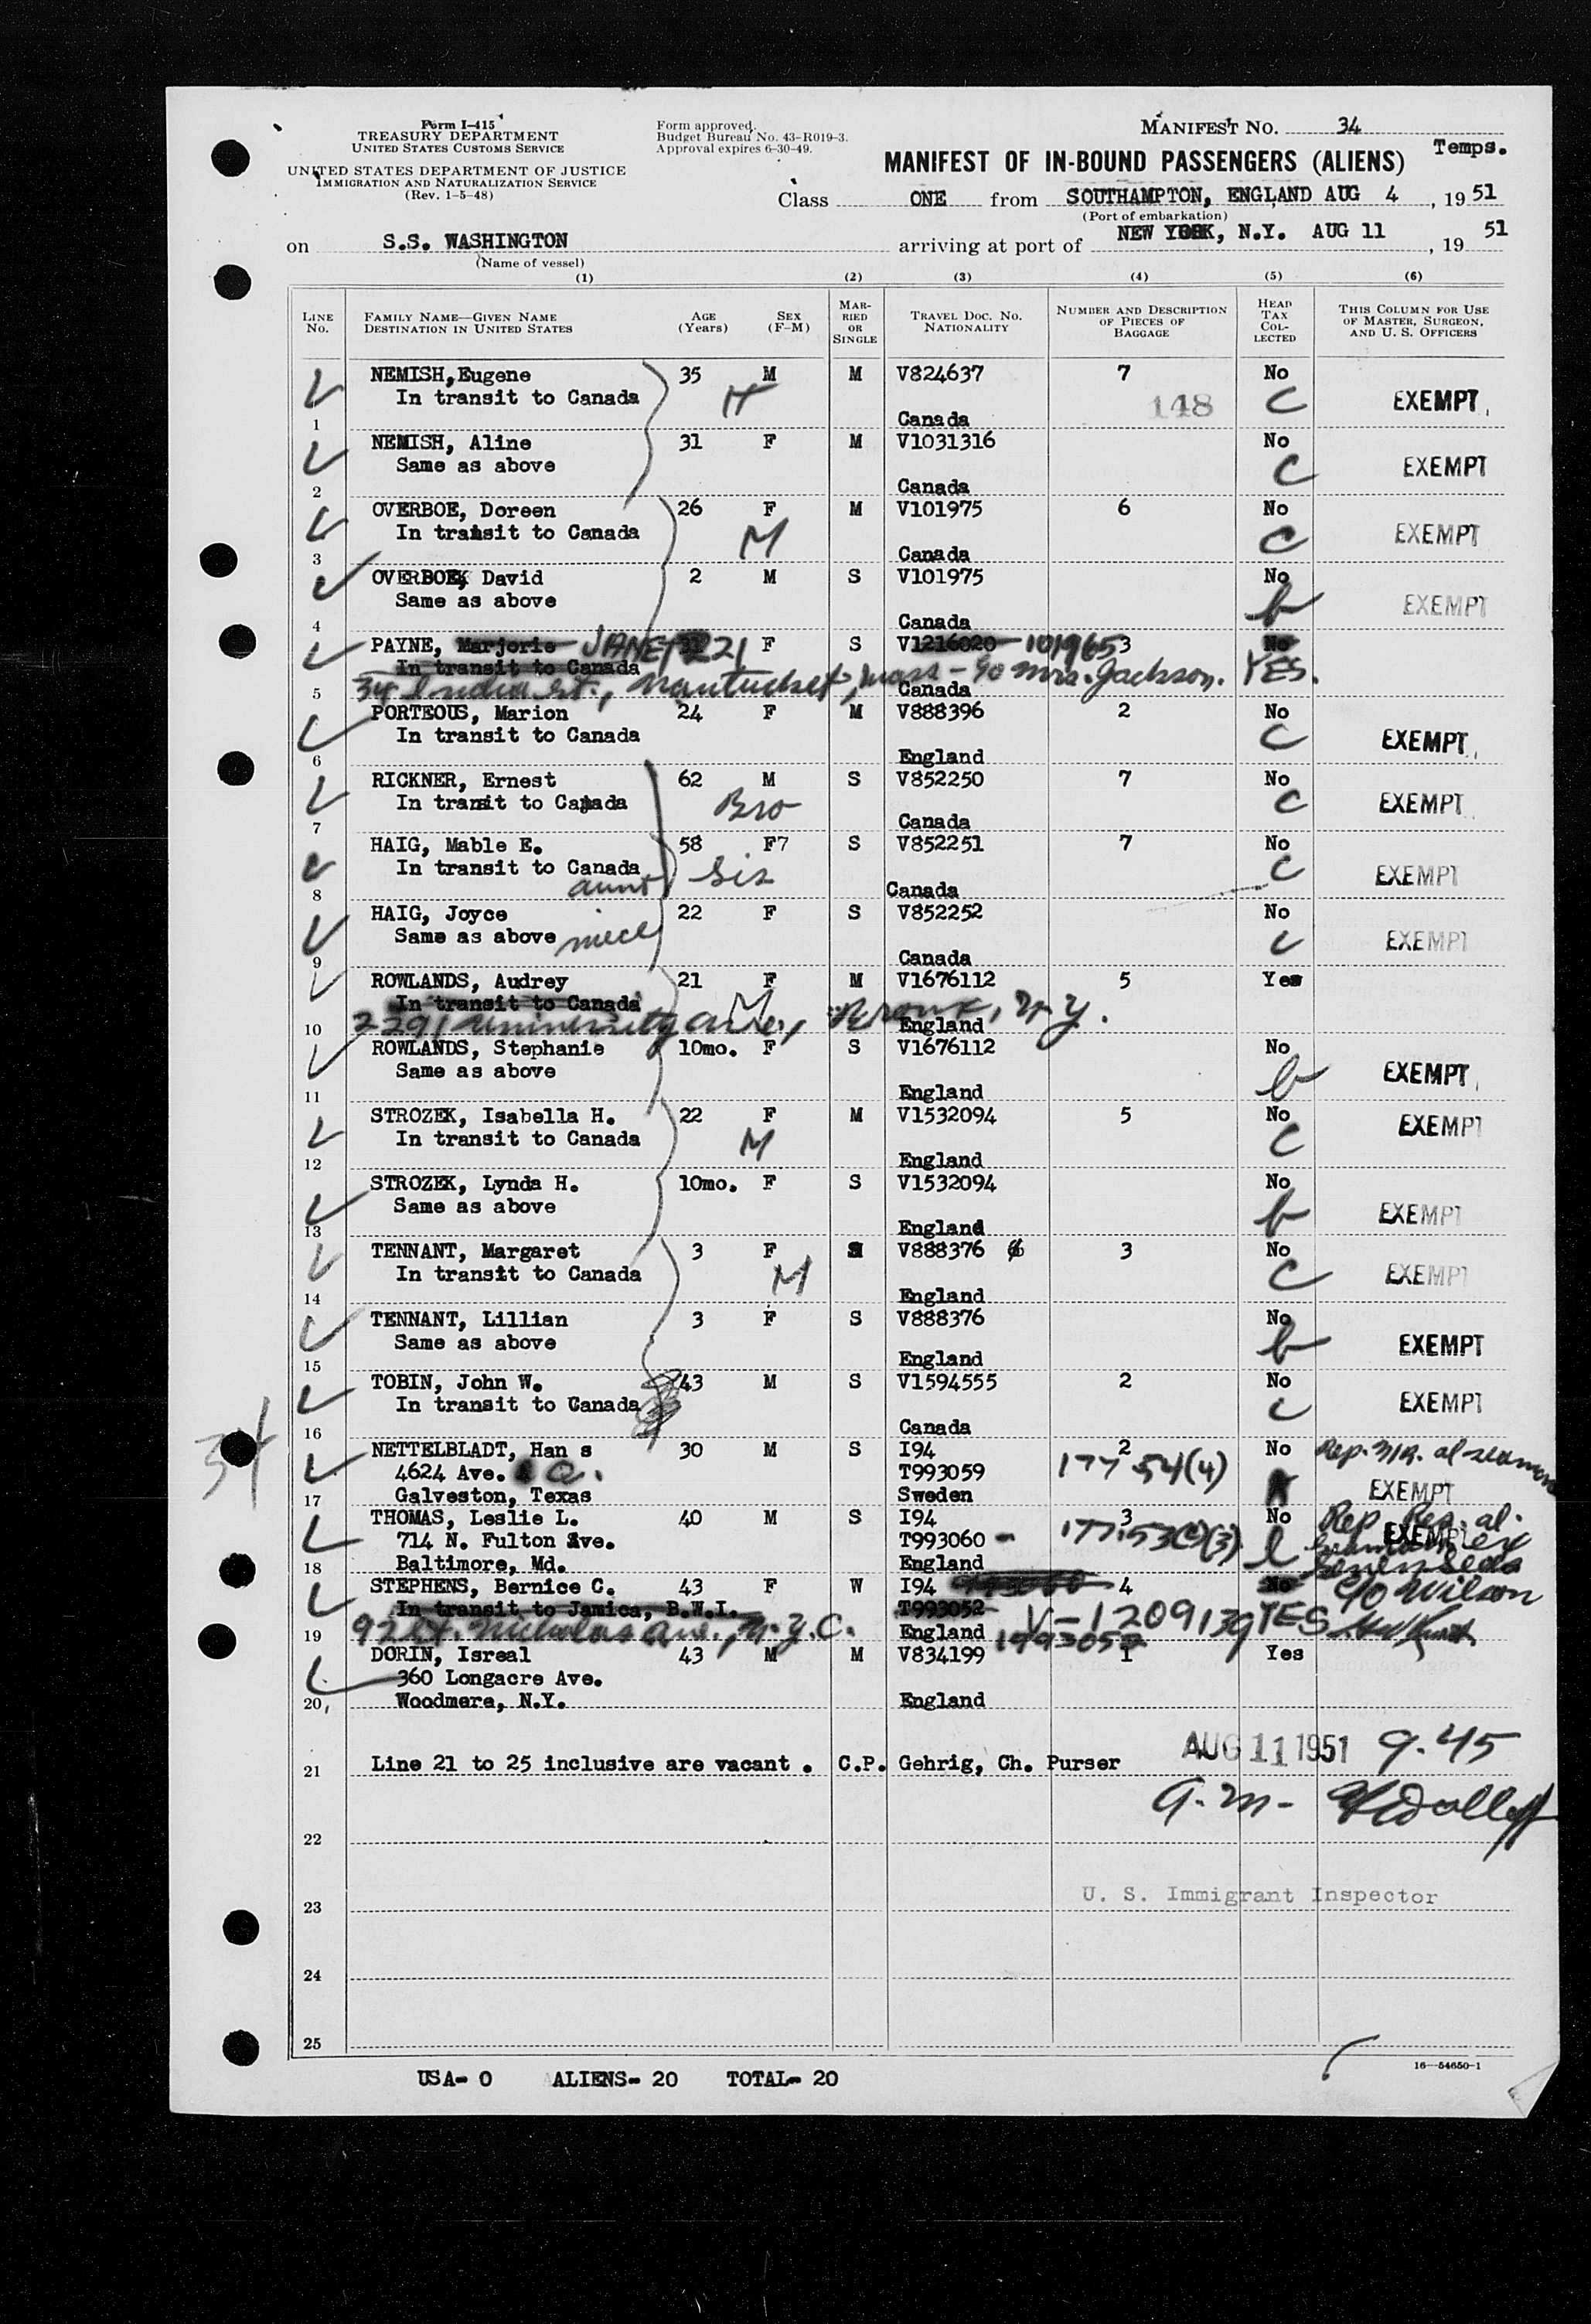 Form I-415
TREASURY DEPARTMENT
UNITED STATES CUSTOMS SERVICE
UNITED STATES DEPARTMENT OF JUSTICE
IMMIGRATION AND NATURALIZATION SERVICE
(Rev. 1-5-48)
Form approved.
Budget Bureau No. 43-R019-3.
Approval expires 6-30-49.
MANIFEST NO. 34
Temps.
MANIFEST OF IN-BOUND PASSENGERS (ALIENS)
Class ONE from SOUTHAMPTON, ENGLAND AUG 4, 19 51
(Port of embarkation)
on S.S. WASHINGTON arriving at port of NEW YORK, N.Y. AUG 11, 19 51
(Name of vessel)
(1) (2) (3) (4) (5) (6)
LINE No. FAMILY NAME—GIVEN NAME DESTINATION IN UNITED STATES AGE (Years) SEX (F-M) MARRIED OR SINGLE TRAVEL DOC. NO. NATIONALITY NUMBER AND DESCRIPTION OF PIECES OF BAGGAGE HEAD TAX COLLECTED THIS COLUMN FOR USE OF MASTER, SURGEON, AND U. S. OFFICERS
NEMISH, Eugene 35 M M V824637 7 No
In transit to Canada H 148 C EXEMPT
1 Canada
NEMISH, Aline 31 F M V1031316 No
Same as above C EXEMPT
2 Canada
OVERBOE, Doreen 26 F M V101975 6 No
In transit to Canada M C EXEMPT
3 Canada
OVERBOE, David 2 M S V101975 No
Same as above b EXEMPT
4 Canada
PAYNE, Marjorie JANET 21 F S V1216020 101965 3 No
In transit to Canada YES.
5 34 India St., Nantucket, Mass - c/o Mrs. Jackson. Canada
PORTEOUS, Marion 24 F M V888396 2 No
In transit to Canada C EXEMPT
6 England
RICKNER, Ernest 62 M S V852250 7 No
In transit to Canada Bro C EXEMPT
7 Canada
HAIG, Mable E. 58 F7 S V852251 7 No
In transit to Canada aunt Sis C EXEMPT
8 Canada
HAIG, Joyce 22 F S V852252 No
Same as above niece C EXEMPT
9 Canada
ROWLANDS, Audrey 21 F M V1676112 5 Yes
In transit to Canada M
10 2291 University Ave., Bronx, N.Y. England
ROWLANDS, Stephanie 10mo. F S V1676112 No
Same as above b EXEMPT
11 England
STROZEK, Isabella H. 22 F M V1532094 5 No
In transit to Canada M C EXEMPT
12 England
STROZEK, Lynda H. 10mo. F S V1532094 No
Same as above b EXEMPT
13 England
TENNANT, Margaret 3 F V888376 3 No
In transit to Canada M C EXEMPT
14 England
TENNANT, Lillian 3 F S V888376 No
Same as above b EXEMPT
15 England
TOBIN, John W. 43 M S V1594555 2 No
In transit to Canada C EXEMPT
16 Canada
34
NETTELBLADT, Han s 30 M S I94 2 No
4624 Ave. Q. T993059 177 54(4)
17 Galveston, Texas Sweden EXEMPT
THOMAS, Leslie L. 40 M S I94 3 No Rep. Res. al.
714 N. Fulton Ave. T993060 - EXEMPT
18 Baltimore, Md. England
STEPHENS, Bernice C. 43 F W I94 4 No c/o Wilson
In transit to Jamica, B.W.I. T993052 V-1209139 YES
19 92 St. Nicholas Ave., N.Y.C. England
DORIN, Isreal 43 M M V834199 1 Yes
360 Longacre Ave.
20 Woodmere, N.Y. England
21 Line 21 to 25 inclusive are vacant. C.P. Gehrig, Ch. Purser AUG 11 1951 9.45
A.M-
22
U. S. Immigrant Inspector
23
24
25
16—54650-1
USA- 0 ALIENS- 20 TOTAL- 20